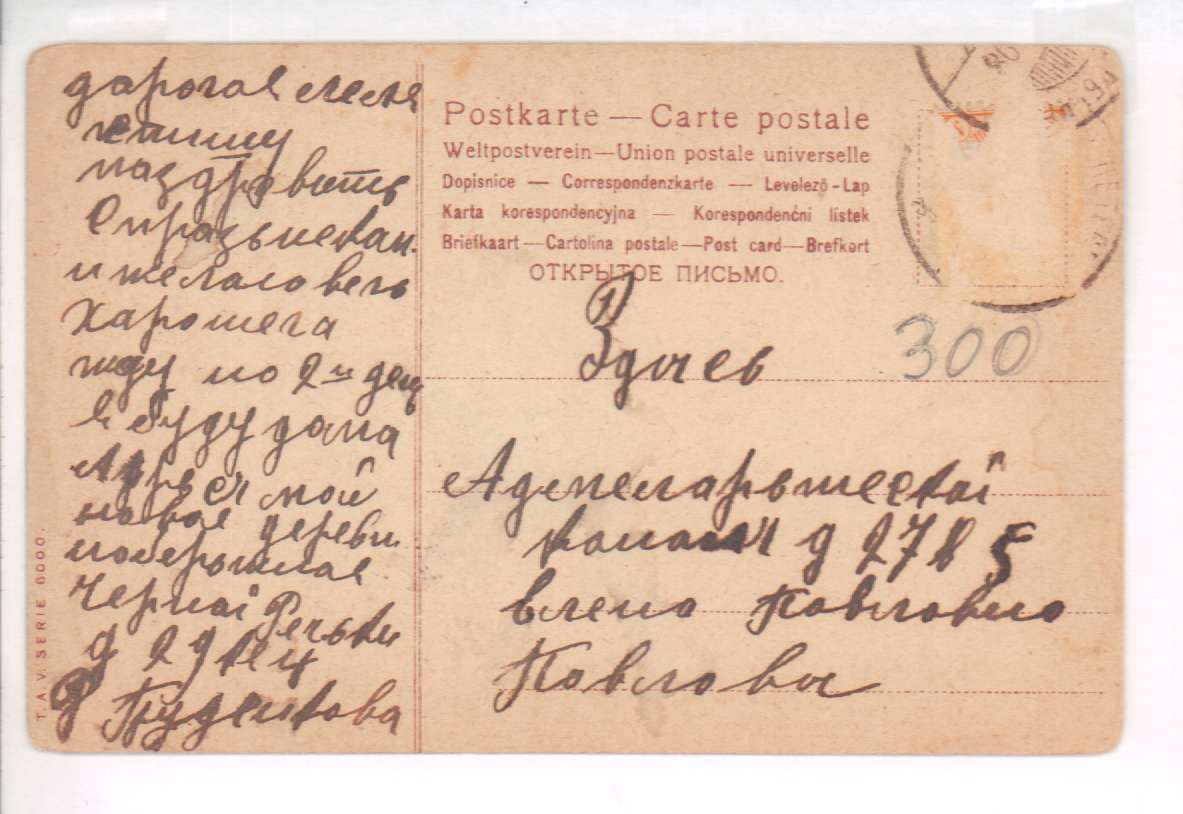 дарогая леля
спишу
паздровить
С празьнекам.
и желаю всего
харошега
жду на 2ой день
я буду дома
Адрес мой
новая деревн.
набережная
Чернай Речьки
д 29 кв 14
Грудешкова
T.A.V. SERIE 6000.
Postkarte — Carte postale
Weltpostverein — Union postale universelle
Dopisnice — Correspondenzkarte — Levelező-Lap
Karta korespondencyjna — Korespondenční listek
Briefkaart — Cartolina postale — Post card — Brefkort
ОТКРЫТОЕ ПИСЬМО.
Здысь
300
Адмеларьтеской
канал д 27 к 5
Елено Павловно
Павловы